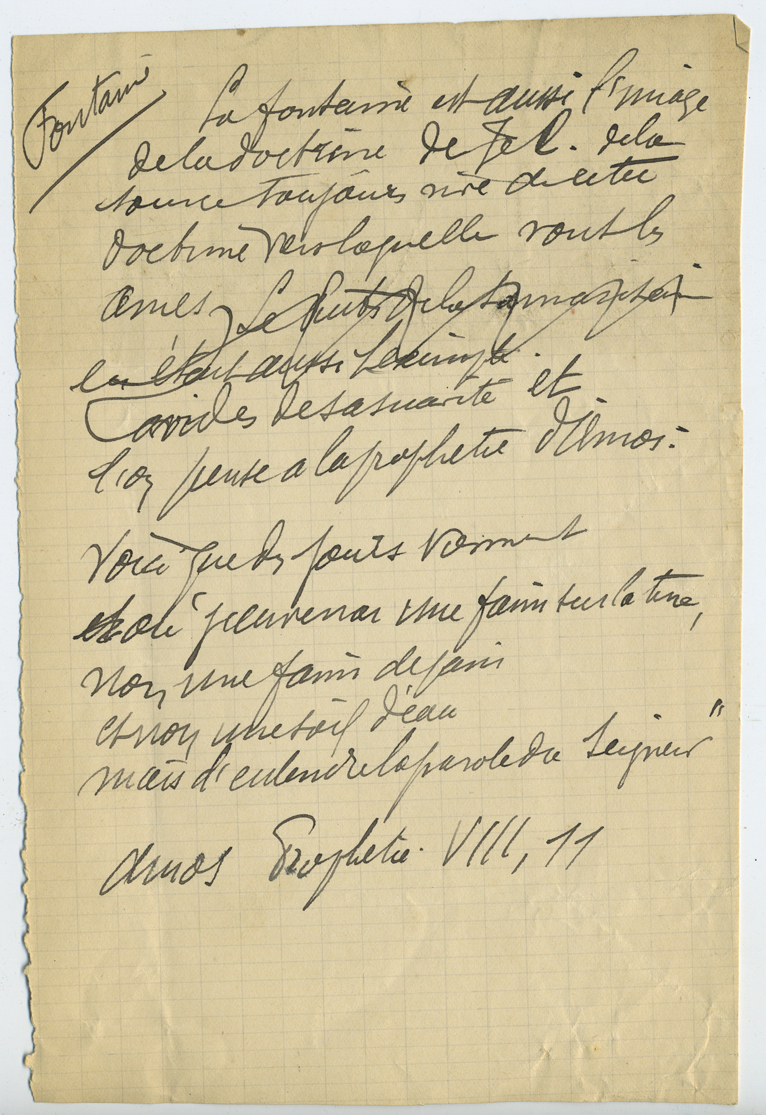 Fontaine
La fontaine est aussi l'image
de la doctrine de J. C. de la
source toujours vive de cette
doctrine vers laquelle vont les
âmes Le puits de la Samaritaine
en était aussi l'exemple.
avides de sa suavité et
l'on pense à la prophétie d'Amos :
Voici que des jours viennent
et où j'enverrai une faim sur la terre,
non une faim de pain
et non une soif d'eau
mais d'entendre la parole du Seigneur"
Amos Prophétie. VIII, 11